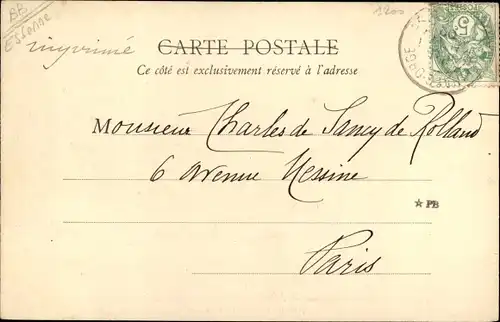 BB
Essonne
imprimé
1200
CARTE POSTALE
Ce côté est exclusivement réservé à l'adresse
5
ORGE
Monsieur Charles de Sancy de Rolland
6 avenue Messine
★ PB
Paris